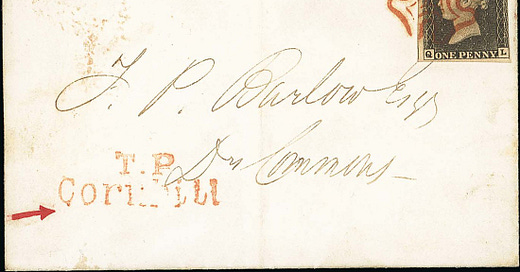 Q ONE PENNY L
F. P. Barlow Esqr
Drs Commons
T.P
Cornhill